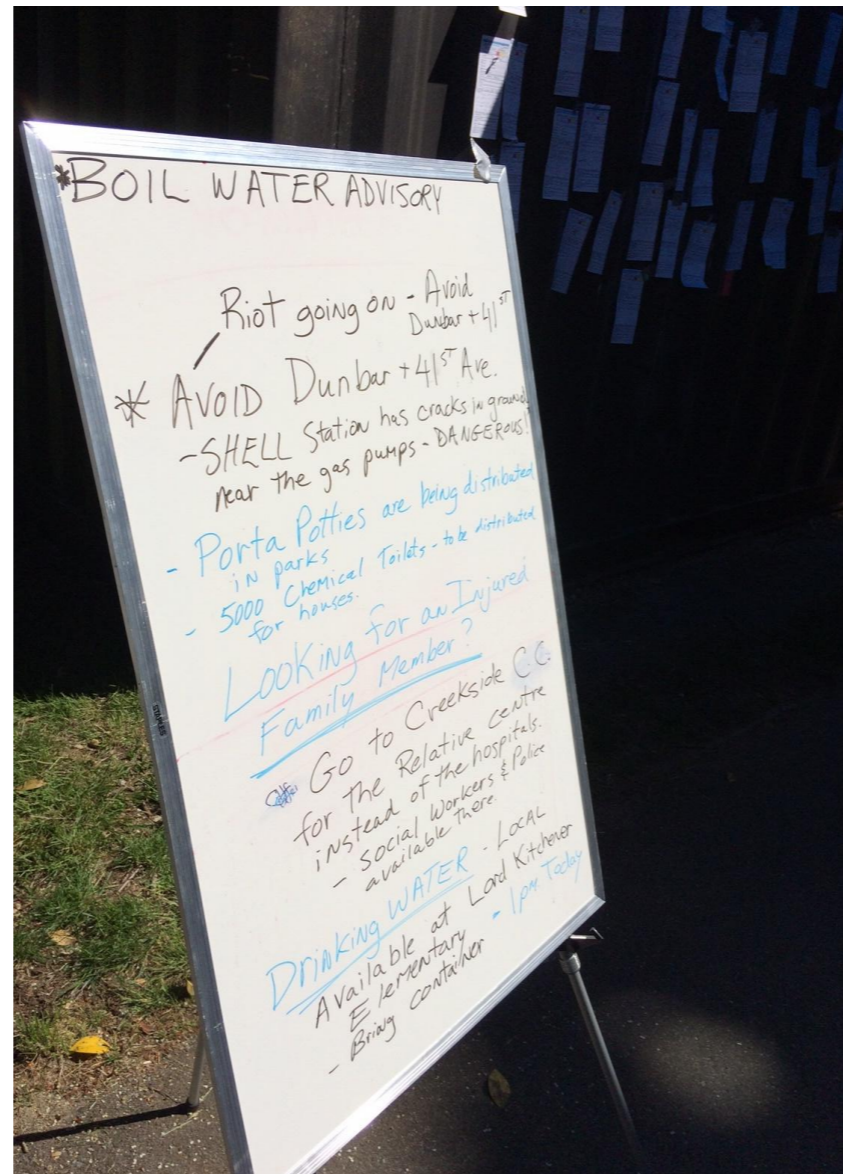 *BOIL WATER ADVISORY
Riot going on - Avoid
Dunbar + 41ST
* AVOID Dunbar + 41ST Ave.
- SHELL Station has cracks in ground
near the gas pumps - DANGEROUS!
- Porta Potties are being distributed
in parks
- 5000 Chemical Toilets - to be distributed
for houses.
Looking for an Injured
Family Member?
Go to Creekside C.C.
for the Relative centre
instead of the hospitals.
- Social Workers & Police
available there.
Drinking WATER - Local
Available at Lord Kitchener
Elementary - 1pm Today
- Bring container
STAPLES